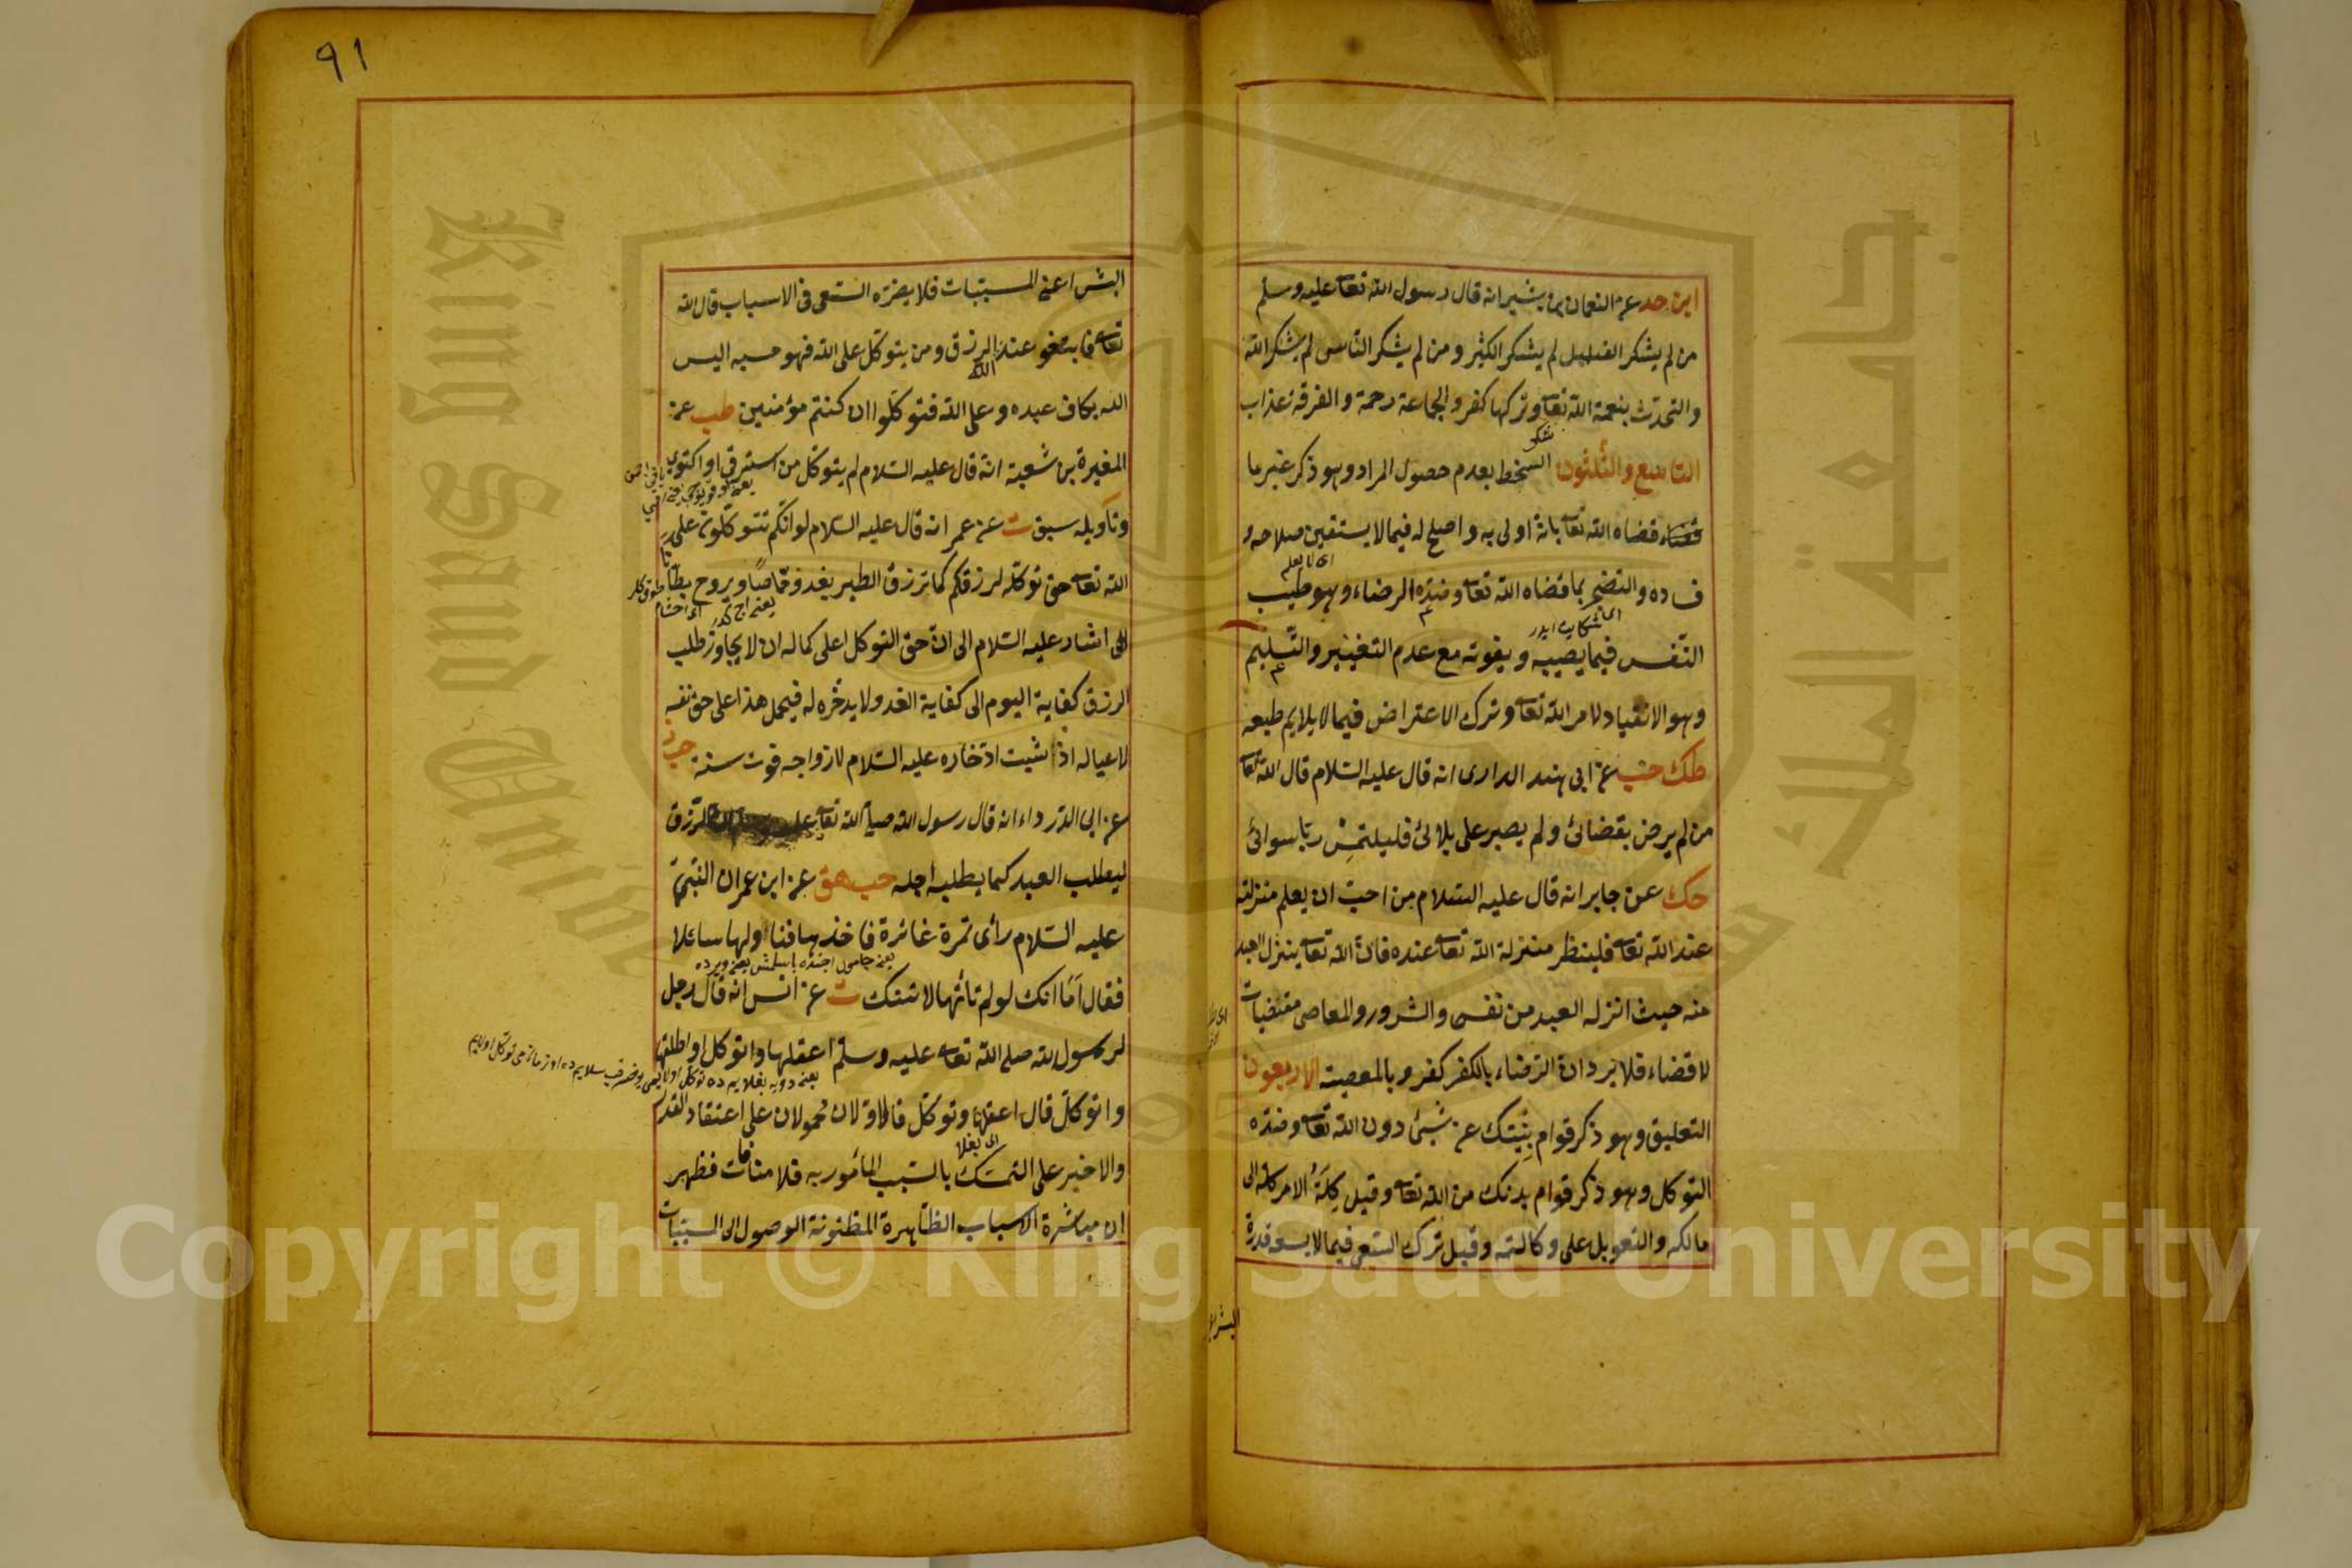 ٩١
ابن حد عن النعمان بن بشير انه قال رسول الله تعا عليه وسلم
من لم يشكر القليل لم يشكر الكثير ومن لم يشكر الناس لم يشكر الله
والتحدّث بنعمة الله تعا وتركها كفر والجماعة رحمة والفرقة عذاب
شكو
التاسع والثلثون السخط بعدم حصول المراد وهو ذكر غير ما
قضاه الله تعا بانه اولى به واصلح له فيما لا يستقين صلاحه و
اى لا يعلم
فساده والتضجر بما قضاه الله تعا وضدّه الرضاء وهو طيب
النفس فيما يصيبه ويفوته مع عدم التغيير والتسليم
وهو الانقياد لامر الله تعا وترك الاعتراض فيما لا يلايم طبعه
طك حب عن ابى هند الدارى انه قال عليه السلام قال الله تعا
من لم يرض بقضائى ولم يصبر على بلائى فليلتمس ربا سوائى
حك عن جابر انه قال عليه السلام من احبّ ان يعلم منزلته
عند الله تعا فلينظر منزلة الله تعا عنده فانّ الله تعا ينزل العبد
منه حيث انزله العبد من نفسه والشرور والمعاصى مقتضيات
لا قضاء فلا يرد ان الرضاء بالكفر كفر وبالمعصية الاربعون
التعليق وهو ذكر قوام بنيتك عن شئ دون الله تعا وضدّه
التوكل وهو ذكر قوام بدنك من الله تعا وقيل كلة الامر كله الى
مالكه والتعويل على وكالته وقيل ترك السعى فيما لا يسعه قدرة
البشر اعنى
البشر اعنى المسببات فلا يضره السعى فى الاسباب قال الله
تعا فابتغو عند الله الرزق ومن يتوكل على الله فهو حسبه اليس
الله بكاف عبده وعلى الله فتوكلوا ان كنتم مؤمنين طب عن
المغيرة بن شعبة انه قال عليه السلام لم يتوكل من استرقى او اكتوى
وتأويله سبق ت عن عمر انه قال عليه السلام لو انكم تتوكلون على
الله تعا حق توكله لرزقكم كما ترزق الطير يغدو خماصًا ويروح بطانا
اشار عليه السلام الى ان حق التوكل اعلى كماله ان لا يجاوز طلب
الرزق كفاية اليوم الى كفاية الغد ولا يدخره له فيحمل هذا على حق نفسه
لا عياله اذ ثبت ادّخاره عليه السلام لازواجه قوت سنة
عن ابى الدرداء انه قال رسول الله صلى الله تعا عليه وسلم ان الرزق
ليطلب العبد كما يطلبه اجله حب هق عن ابن عمر ان النبىّ
عليه السلام رأى تمرة غائرة فاخذها فناولها سائلا
فقال اما انك لو لم تأتها لاتتك ت عن انس انه قال رجل
لرسول الله صلى الله تعا عليه وسلم اعقلها واتوكل او اطلقها
واتوكل قال اعقلها وتوكل فالاولان محمولان على اعتقاد القدر
اى بغلا
والاخير على التمسك بالسبب المأمور به فلا منافات فظهر
ان مباشرة الاسباب الظاهرة المظنونة الوصول الى المسببات
Copyright © King Saud University
King Saud University
جامعة الملك سعود